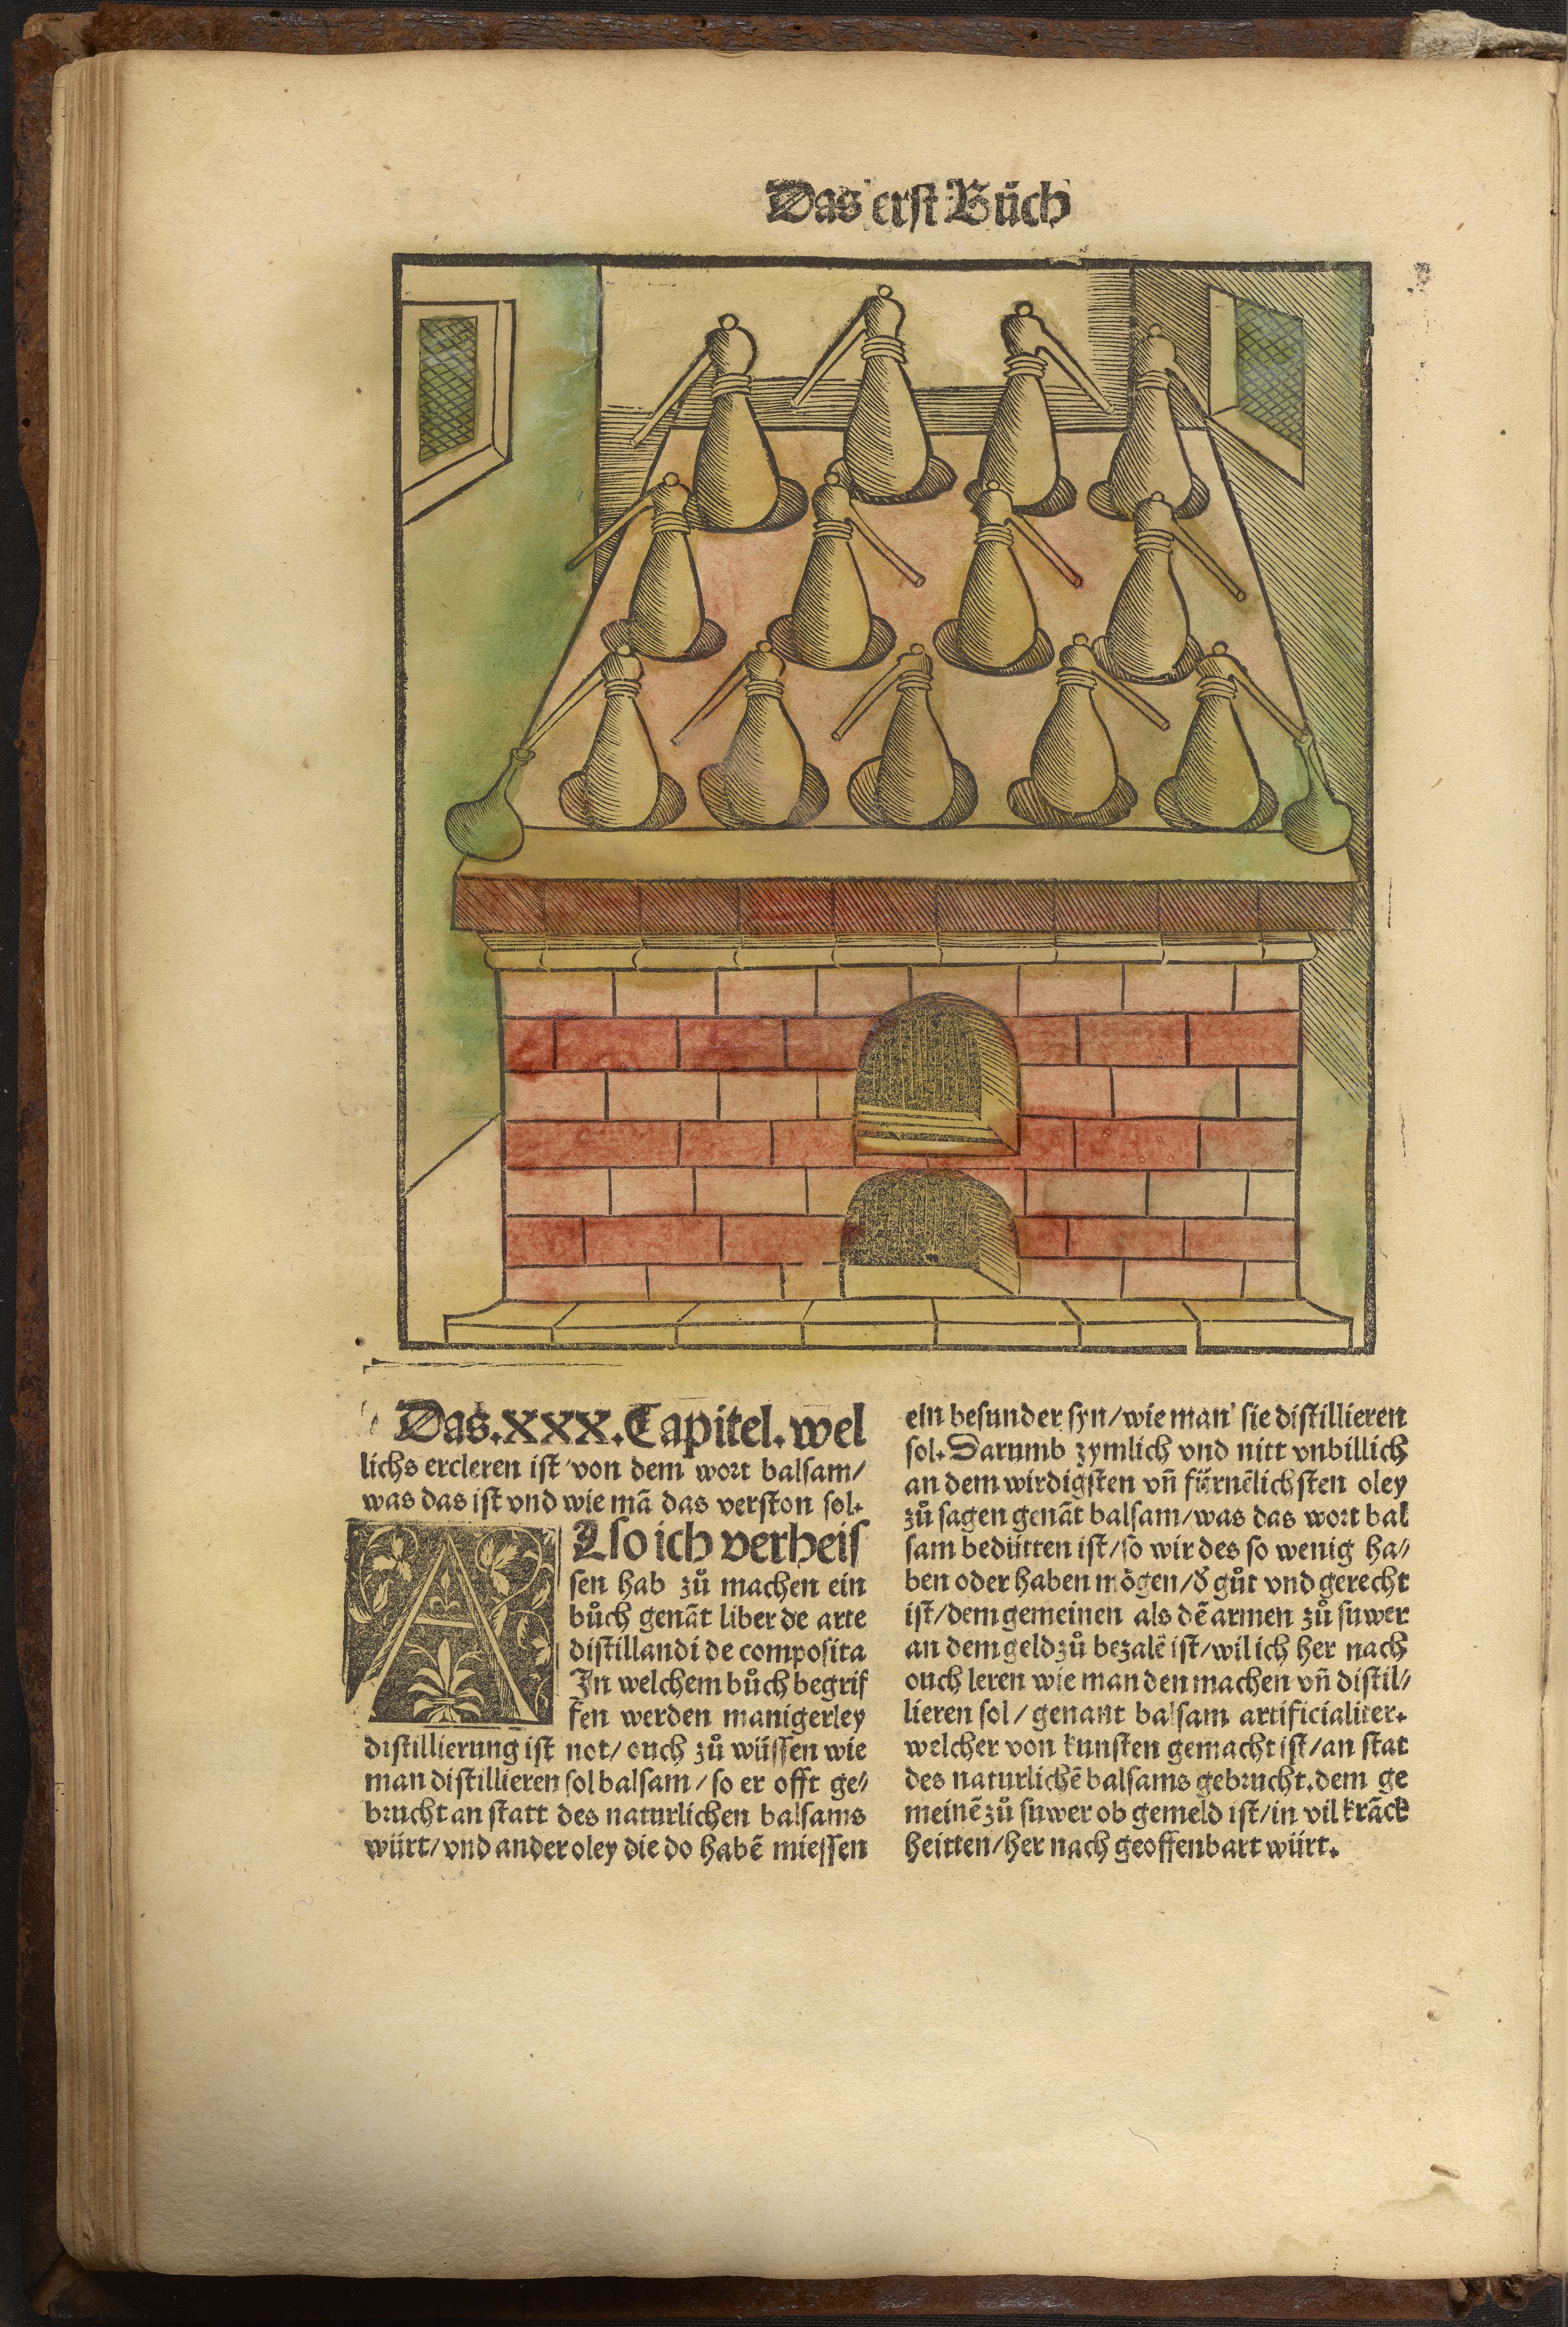 Das erst Bůch
Das.XXX.Capitel.wel
lichs ercleren ist von dem wort balsam/
was das ist vnd wie mā das verston sol.
Also ich verheis
sen hab zů machen ein
bůch genāt liber de arte
distillandi de composita
In welchem bůch begrif
fen werden manigerley
distillierung ist not/ ouch zů wüssen wie
man distillieren sol balsam/ so er offt ge⸗
brucht an statt des naturlichen balsams
würt/ vnd ander oley die do habē miessen
ein besunder syn/ wie man sie distillieren
sol. Darumb zymlich vnd nitt vnbillich
an dem wirdigsten vn̄ fürnēlichsten oley
zů sagen genāt balsam/ was das wort bal
sam bedütten ist/ so wir des so wenig ha⸗
ben oder haben mögen/ ð gůt vnd gerecht
ist/ dem gemeinen als dē armen zů suwer
an dem geld zů bezalē ist/ wil ich her nach
ouch leren wie man den machen vn̄ distil⸗
lieren sol/ genant balsam artificialiter.
welcher von kunsten gemacht ist/ an stat
des naturlichē balsams gebrucht. dem ge
meinē zů suwer ob gemeld ist/ in vil krāck
heitten/ her nach geoffenbart würt.